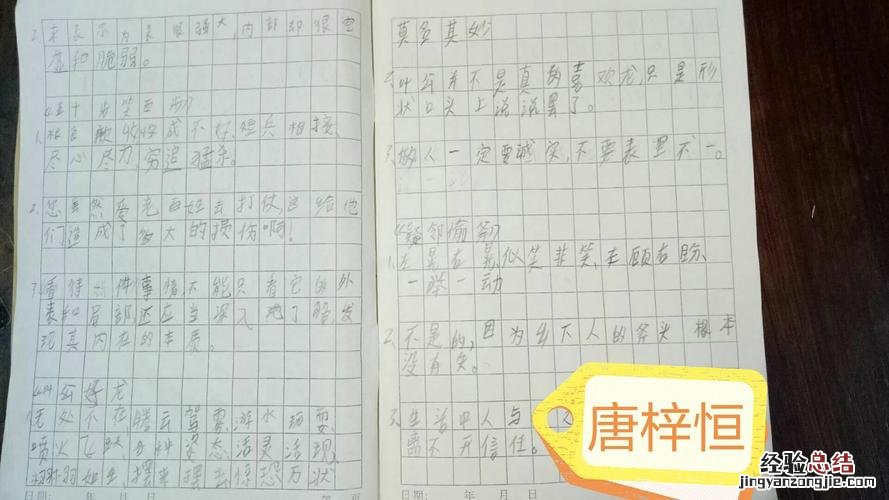 2、来表示为表很强大,内部却很空
虚和脆弱。
《五十步笑百步》
1、收成不好,短兵相接、
尽心尽力、穷追猛杀。
2、您虽然爱百姓去打仗,这给他
们造成了多大的损伤啊!
3、看待一件事情,不能只看它的外
表和局部,还应当深入地了解,发
现其内在的本质。
《叶公好龙》
无处不在、腾云驾雾、游水玩耍、
喷火飞跃、多种姿态、活灵活现、
栩栩如生、摆来摆去、惊恐万状
日期: 年 月 日
莫名其妙
2、叶公并不是真的喜欢龙,只是形
状口头上说说罢了。
3、做人一定要诚实,不要表里不一。
《疑邻偷斧》
1、左晃右晃、似笑非笑、左顾右盼、
一举一动
2、不是的,因为乡下人的斧头根本
没有失。
3、生活中人与人
离不开信任。
日期: 年 月 日
唐梓恒
经验总结
jingyanzongjie.com